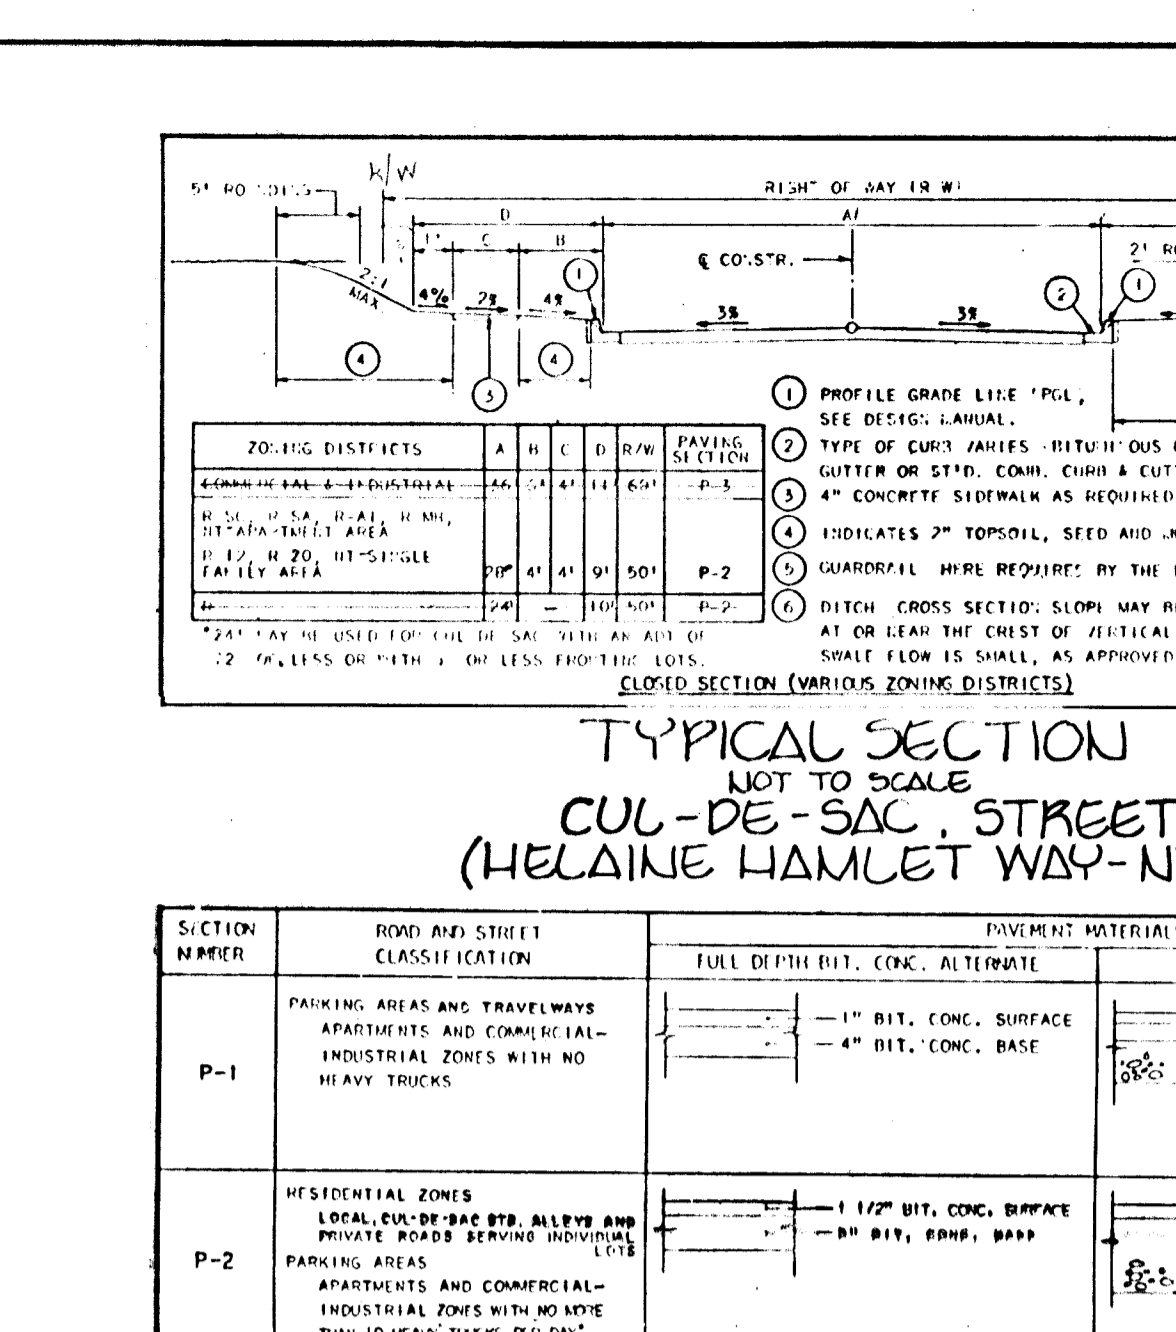 R/W
5' RO
RIGHT OF WAY (R W)
D
A/
1' C B
℄ CONSTR.
2' R
2:1
MAX
4% 2% 4%
3% 3%
1 2 1
4 4
3
1 PROFILE GRADE LINE 'PGL',
SEE DESIGN MANUAL.
2 TYPE OF CURB VARIES
GUTTER OR ST'D. COMB. CURB &
3 4" CONCRETE SIDEWALK AS REQUIRED
4 INDICATES 2" TOPSOIL, SEED AND
5 GUARDRAIL HERE REQUIRES BY THE
6 DITCH CROSS SECTION SLOPE MAY
AT OR NEAR THE CREST OF VERTICAL
SWALE FLOW IS SMALL, AS APPROVED
ZONING DISTRICTS A B C D R/W PAVING SECTION
COMMERCIAL & INDUSTRIAL 4' 60' P-3
R-SC, R-SA, R-A1, R-MH,
APARTMENT AREA
R-12, R-20, NT-SINGLE
FAMILY AREA 28* 4' 4' 9' 50' P-2
R 24' — 10' 50' P-2
*24' MAY BE USED FOR CUL DE SAC WITH AN ADT OF
OR LESS OR WITH OR LESS FRONTING LOTS.
CLOSED SECTION (VARIOUS ZONING DISTRICTS)
TYPICAL SECTION
NOT TO SCALE
CUL-DE-SAC. STREET
(HELAINE HAMLET WAY-N
SECTION NUMBER
ROAD AND STREET CLASSIFICATION
PAVEMENT MATERIAL
FULL DEPTH BIT. CONC. ALTERNATE
P-1
PARKING AREAS AND TRAVELWAYS
APARTMENTS AND COMMERCIAL-
INDUSTRIAL ZONES WITH NO
HEAVY TRUCKS
1" BIT. CONC. SURFACE
4" BIT. CONC. BASE
P-2
RESIDENTIAL ZONES
LOCAL, CUL-DE-SAC STS. ALLEYS AND
PRIVATE ROADS SERVING INDIVIDUAL
LOTS
PARKING AREAS
APARTMENTS AND COMMERCIAL-
INDUSTRIAL ZONES WITH NO MORE
THAN 10 HEAVY TRUCKS PER DAY*
1 1/2" BIT. CONC. SURFACE
BIT. CONC. BASE